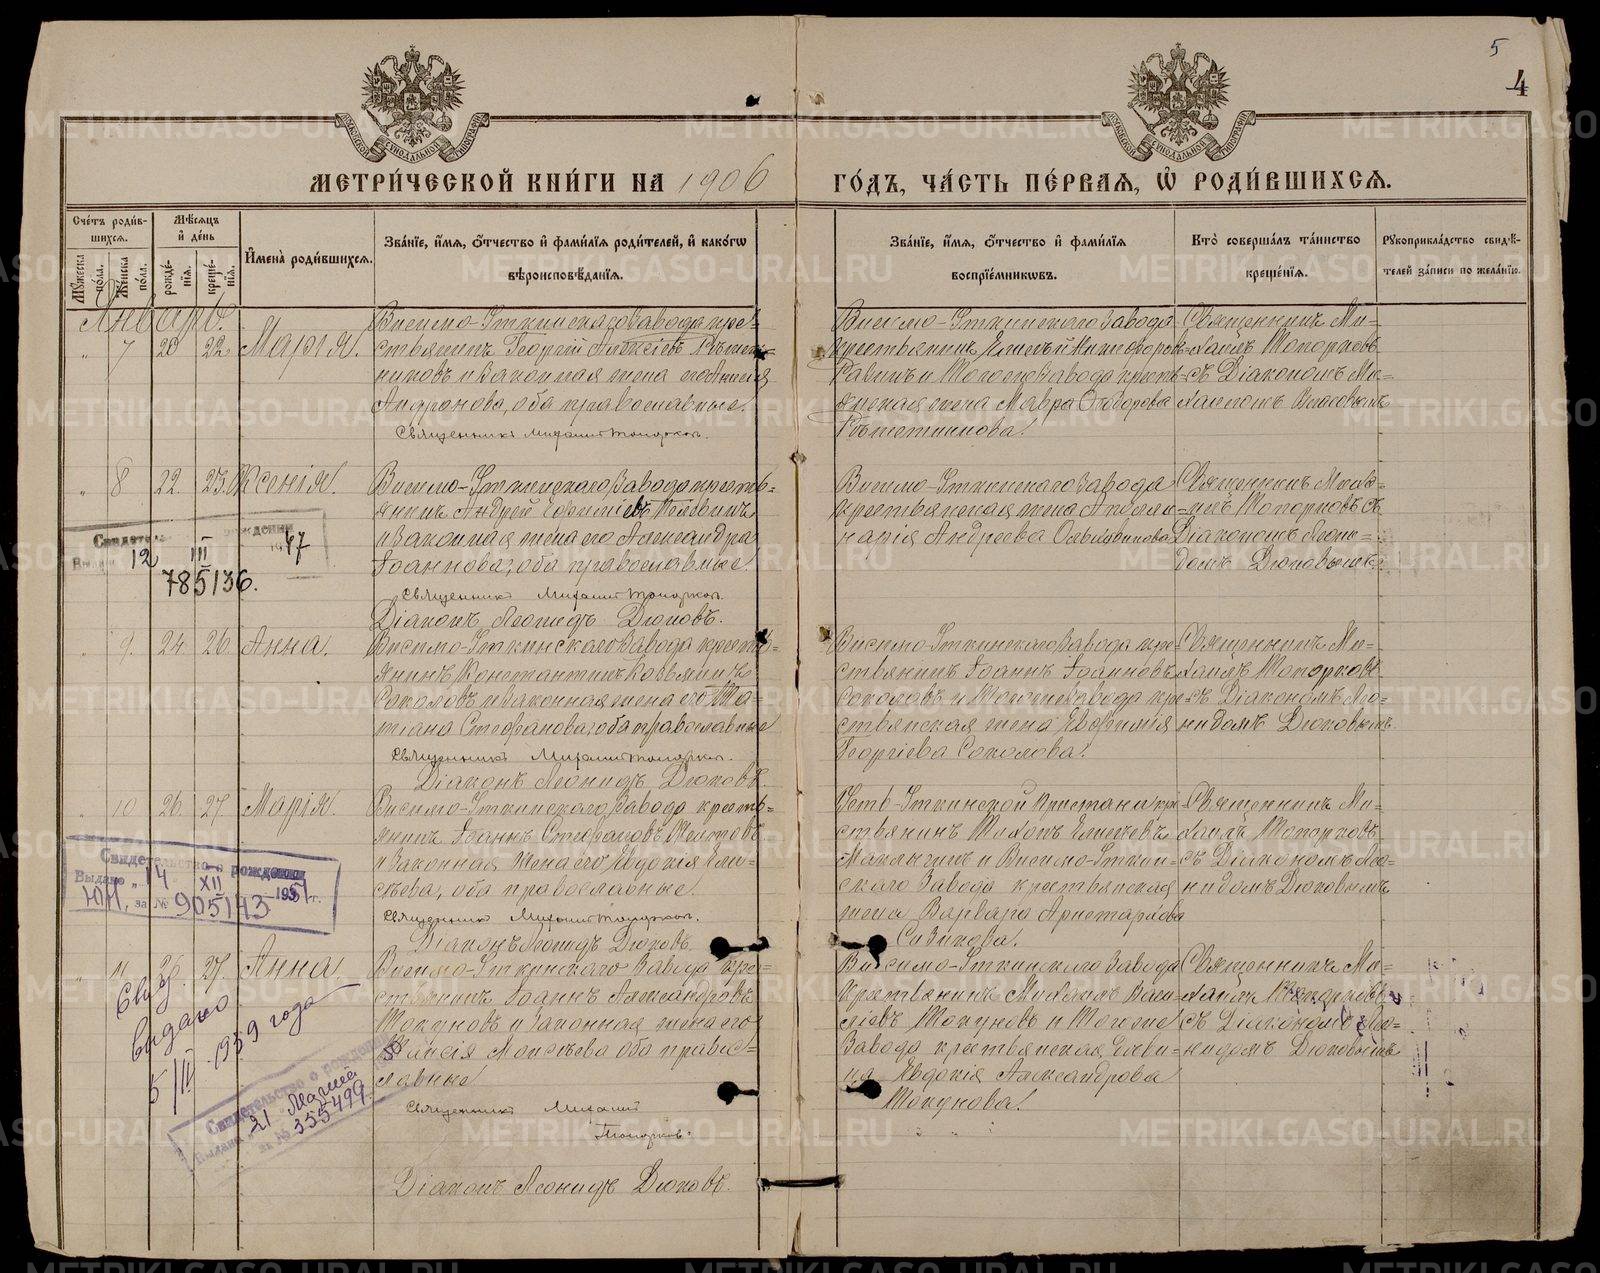 5
4
МЕТРИ́ЧЕСКОЙ КНИ́ГИ НА 1906
ГО́ДЪ, ЧА́СТЬ ПЕ́РВАЯ, Ѿ РОДИ́ВШИХСѦ.
Сче́тъ роди́в-
шихсѧ.
Мѣ́сѧцъ
и҆ де́нь
И҆мена̀ роди́вшихсѧ.
Зва́нїе, и҆́мѧ, ѻ҆́тчество и҆ фами́лїѧ роди́телей, и҆ како́гѡ
вѣроисповѣ́данїѧ.
Зва́нїе, и҆́мѧ, ѻ҆́тчество и҆ фами́лїѧ
воспрїе́мникѡвъ.
Кто̀ соверша́лъ та́инство
креще́нїѧ.
Рꙋкоприкла́дство свидѣ́-
телей за́писи по жела́нїю.
Мꙋ́жеска
по́ла.
Же́нска
по́ла.
рожде́-
нїѧ.
креще́-
нїѧ.
Январь.
" 7 20 22 Марія.
Висимо-Уткинскаго завода кре-
стьянинъ Георгій Алексіевъ Рѣшет-
никовъ и законная жена его Анисія
Андронова, оба православные.
Священникъ Михаилъ Топорковъ.
Висимо-Уткинскаго завода
крестьянинъ Елисей Никифоровъ
и того же завода кресть-
янская жена Мавра Ѳеодорова
Рѣшетникова.
Священникъ Ми-
хаилъ Топорковъ
съ Діакономъ Ми-
хаиломъ
" 8 22. 23. Ксенія.
Висимо-Уткинскаго завода кресть-
янинъ Андрей Ефимовъ
и законная жена его Александра
Іоаннова, оба православные.
Священникъ Михаилъ Топорковъ.
Діаконъ Леонидъ Дюковъ.
Висимо-Уткинскаго завода
крестьянская жена Аполли-
нарія Андреева
Священникъ Миха-
илъ Топорковъ съ
Діакономъ Леони-
домъ Дюковымъ.
Свидетель рождении
12 III 1947
785136.
" 9. 24. 26. Анна.
Висимо-Уткинскаго завода кресть-
янинъ Константинъ Козьминъ
Соколовъ и законная жена его Та-
тіана Стефанова, оба православные
Священникъ Михаилъ Топорковъ.
Діаконъ Леонидъ Дюковъ.
Висимо-Уткинскаго завода кре-
стьянинъ Іоаннъ Іоанновъ
Соколовъ и того же завода кре-
стьянская жена Евфимія
Георгіева Соколова.
Священникъ Ми-
хаилъ Топорковъ
съ Діакономъ Лео-
нидомъ Дюковымъ.
" 10 26. 27. Марія.
Висимо-Уткинскаго завода кресть-
янинъ Іоаннъ Стефановъ
и законная жена его Евдокія Ели-
сѣева, оба православные.
Священникъ Михаилъ Топорковъ.
Діаконъ Леонидъ Дюковъ.
Усть-Уткинской Пристани кре-
стьянинъ Тихонъ
и Висимо-Уткин-
скаго завода крестьянская
жена Варвара Аристархова
Сизикова.
Священникъ Ми-
хаилъ Топорковъ
съ Діакономъ Лео-
нидомъ Дюковымъ
Свидетельство о рождении
Выдано „14 XII 1951 г.
ЮН, за № 905143
" 11 26. 27. Анна.
Висимо-Уткинскаго завода кре-
стьянинъ Іоаннъ Александровъ
Токуновъ и законная жена его
Таисія Моисѣева оба право-
славные
Священникъ Михаилъ
Топорковъ.
Діаконъ Леонидъ Дюковъ.
Висимо-Уткинскаго завода
крестьянинъ Михаилъ Васи-
ліевъ Токуновъ и того же
завода крестьянская дѣви-
ца Евдокія Александрова
Токунова.
Священникъ Ми-
хаилъ Топорковъ
съ Діакономъ Лео-
нидомъ Дюковымъ
Свид.
видано
5/III 1959 года
Свидетельство о рождении
Выдано 21 Марта
за № 355499.
METRIKI.GASO-URAL.RU